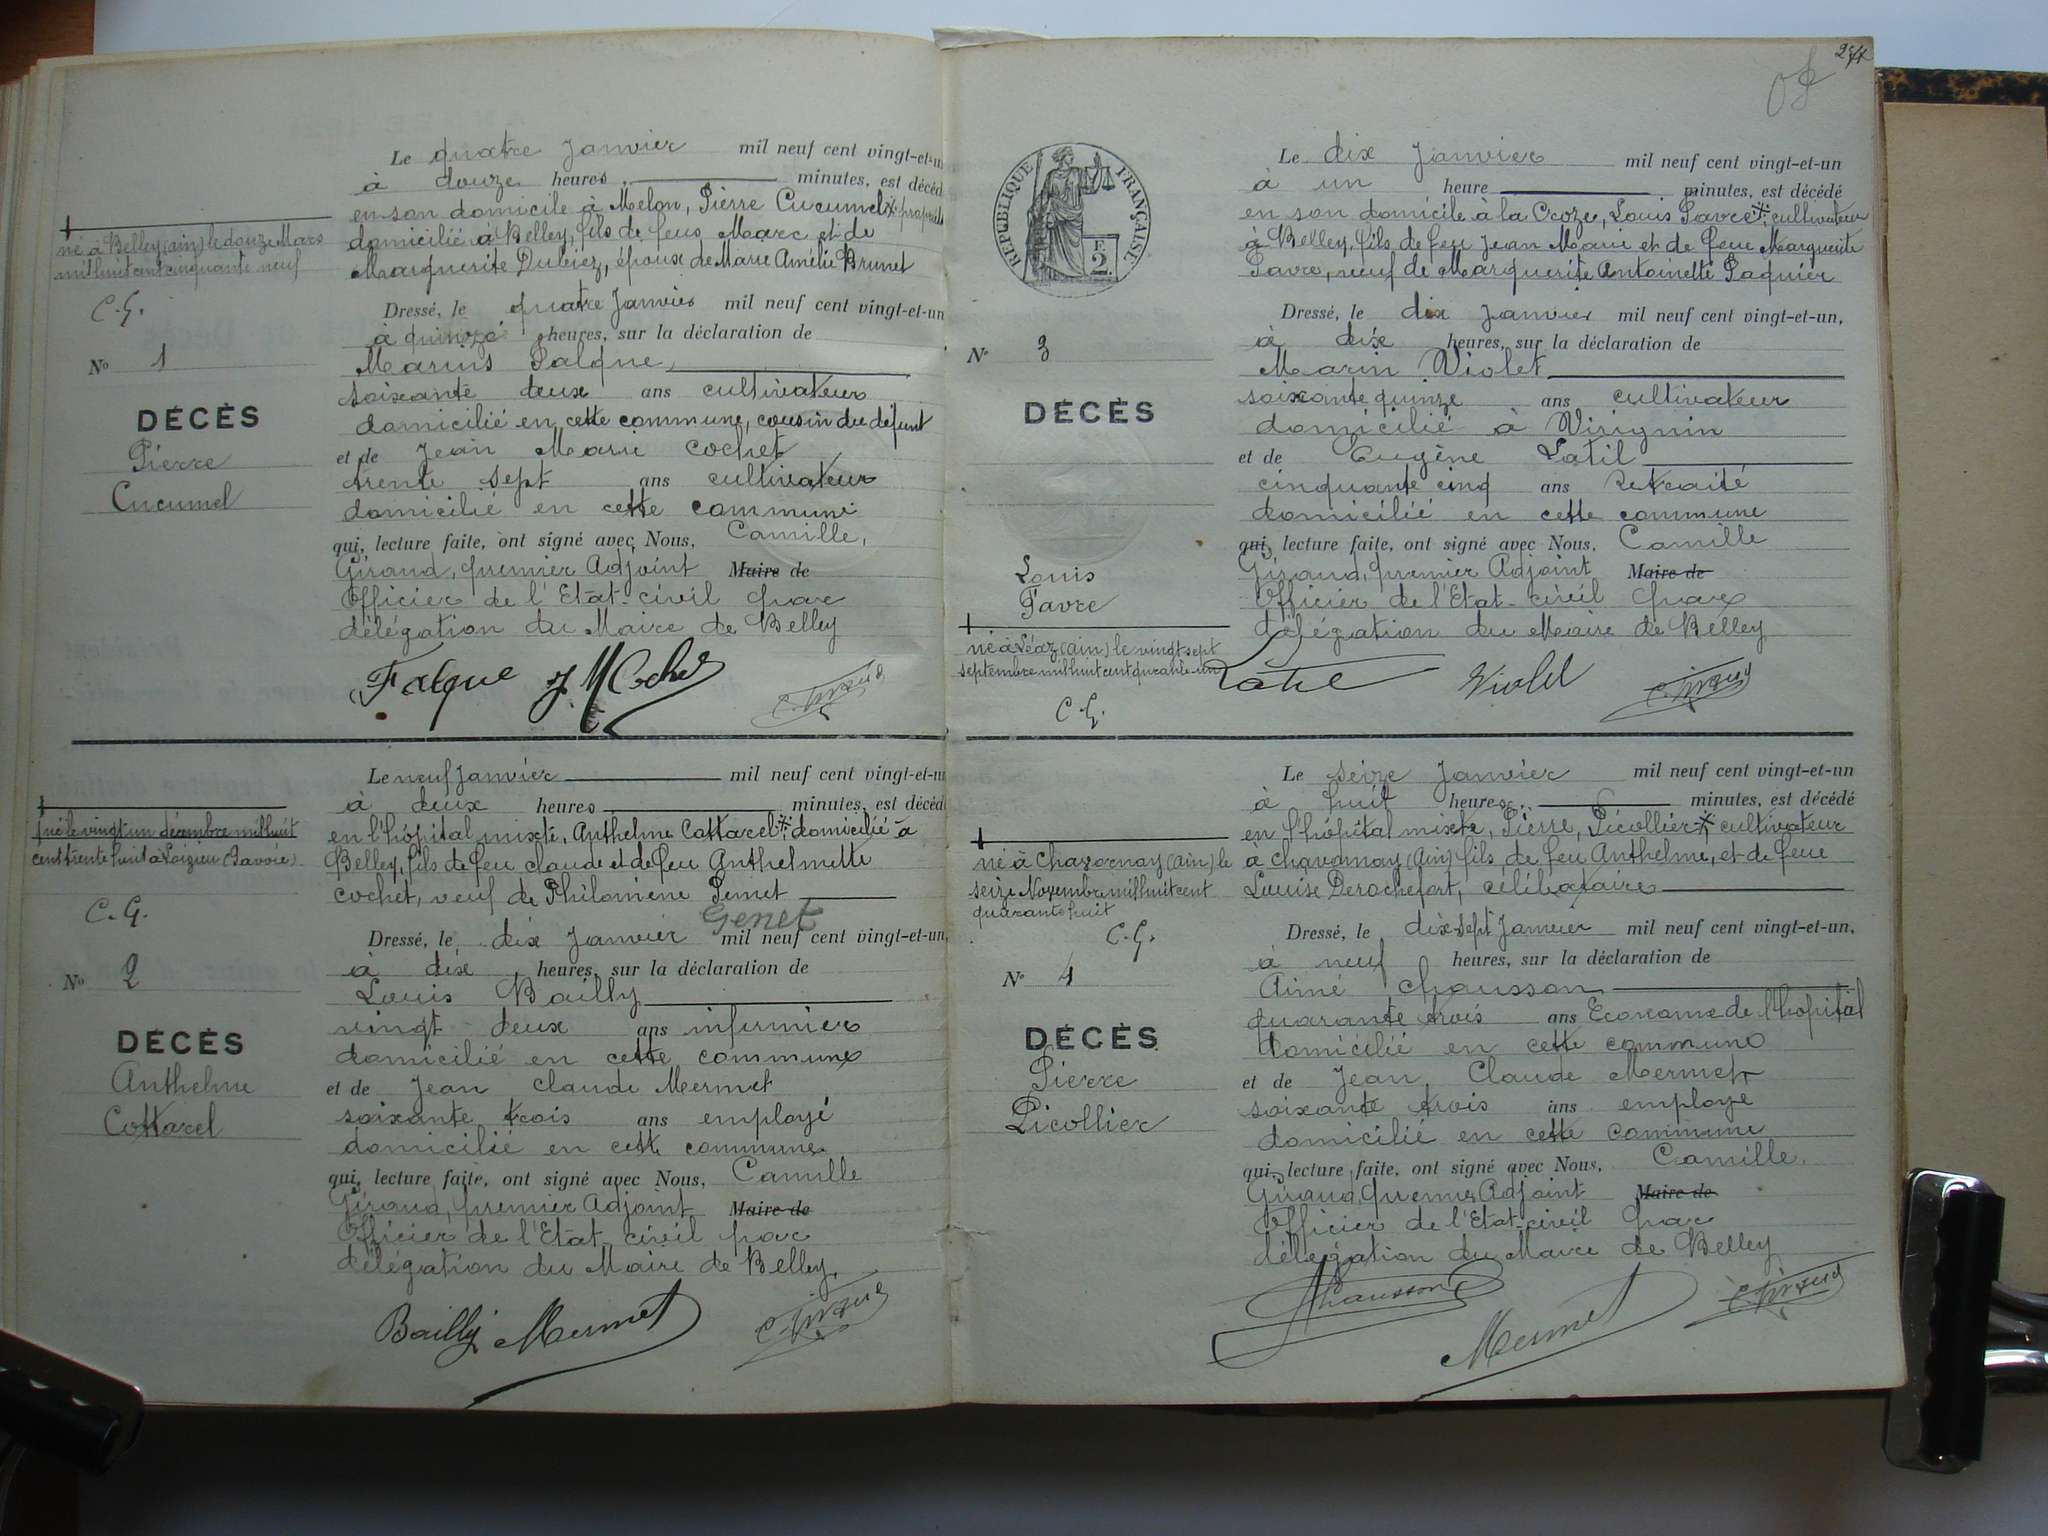 Le quatre Janvier mil neuf cent vingt-et-un
à douze heures minutes, est décédé
en son domicile à Melon, Pierre Cucumel
domicilié à Belley, fils de feus Marc et de
Marguerite Dubiez, époux de Marie Amélie Brunet
né à Belley (ain) le douze Mars
mil huit cent cinquante neuf
C. G.
Dressé, le quatre Janvier mil neuf cent vingt-et-un
à quinze heures, sur la déclaration de
No 1
Marius Falque,
soixante deux ans cultivateur
DÉCÈS
domicilié en cette commune, cousin du défunt
Pierre
et de Jean Marie Cochet
Cucumel
trente sept ans cultivateur
domicilié en cette commune
qui, lecture faite, ont signé avec Nous, Camille,
Giraud, premier Adjoint Maire de
Officier de l'Etat-civil par
délégation du Maire de Belley
Falque J M Cochet C. Giraud
Le neuf Janvier mil neuf cent vingt-et-un
à deux heures minutes, est décédé
en l'hôpital mixte, Anthelme Cottarel * domicilié à
Belley, fils de feu Claude et de feu Anthelmette
Cochet, veuf de Philomène Pernet
Genet
né le vingt un décembre mil huit
cent trente huit à Loizieu (Savoie)
C. G.
Dressé, le dix Janvier mil neuf cent vingt-et-un,
à dix heures, sur la déclaration de
No 2
Louis Bailly
vingt deux ans infirmier
DÉCÈS
domicilié en cette commune
Anthelme
et de Jean Claude Mermet
Cottarel
soixante trois ans employé
domicilié en cette commune
qui, lecture faite, ont signé avec Nous, Camille
Giraud, premier Adjoint Maire de
Officier de l'Etat-civil par
délégation du Maire de Belley.
Bailly Mermet C. Giraud
RÉPUBLIQUE FRANÇAISE
2
Le dix Janvier mil neuf cent vingt-et-un
à un heure minutes, est décédé
en son domicile à la Croze, Louis Favre * cultivateur
à Belley, fils de feu Jean Marie et de feue Marguerite
Favre, veuf de Marguerite Antoinette Paquier
Dressé, le dix Janvier mil neuf cent vingt-et-un,
à dix heures, sur la déclaration de
No 3
Marin Violet
soixante quinze ans cultivateur
DÉCÈS
domicilié à Virignin
et de Eugène Latil
cinquante cinq ans Retraité
domicilié en cette commune
qui, lecture faite, ont signé avec Nous, Camille
Louis
Giraud, premier Adjoint Maire de
Favre
Officier de l'Etat-civil par
délégation du Maire de Belley
né à Léaz (ain) le vingt sept
septembre mil huit cent quarante un
C. G.
Latil Violet C. Giraud
Le seize Janvier mil neuf cent vingt-et-un
à huit heures minutes, est décédé
en l'hôpital mixte, Pierre, Picollier * cultivateur
à Chavornay (Ain) fils de feu Anthelme, et de feue
Louise Derochefort, célibataire
né à Chavornay (ain) le
seize Novembre mil huit cent
quarante huit
C. G.
Dressé, le dix-sept Janvier mil neuf cent vingt-et-un,
à neuf heures, sur la déclaration de
No 4
Aimé Chausson
quarante trois ans Econome de l'hôpital
DÉCÈS
domicilié en cette commune
Pierre
et de Jean Claude Mermet
Picollier
soixante trois ans employé
domicilié en cette commune
qui, lecture faite, ont signé avec Nous, Camille
Giraud, premier Adjoint Maire de
Officier de l'Etat-civil par
délégation du Maire de Belley
Chausson Mermet C. Giraud